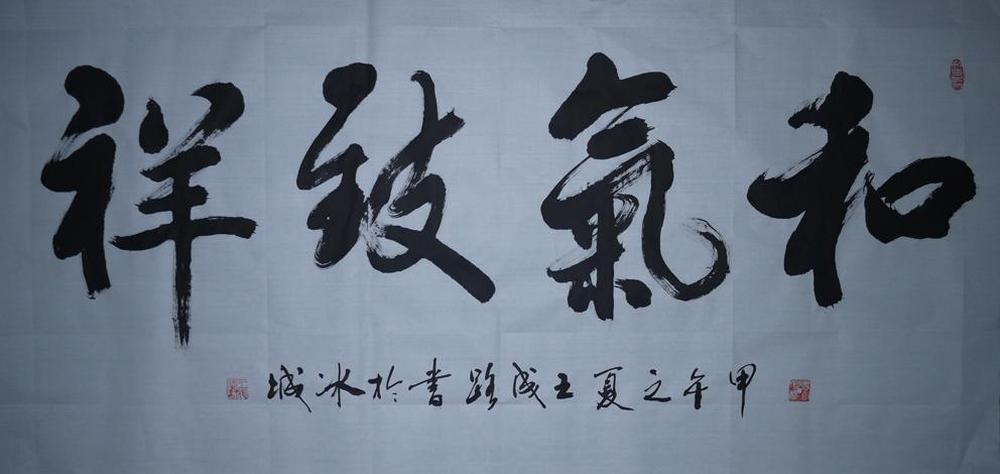 和氣致祥
甲午之夏王成路書於冰城